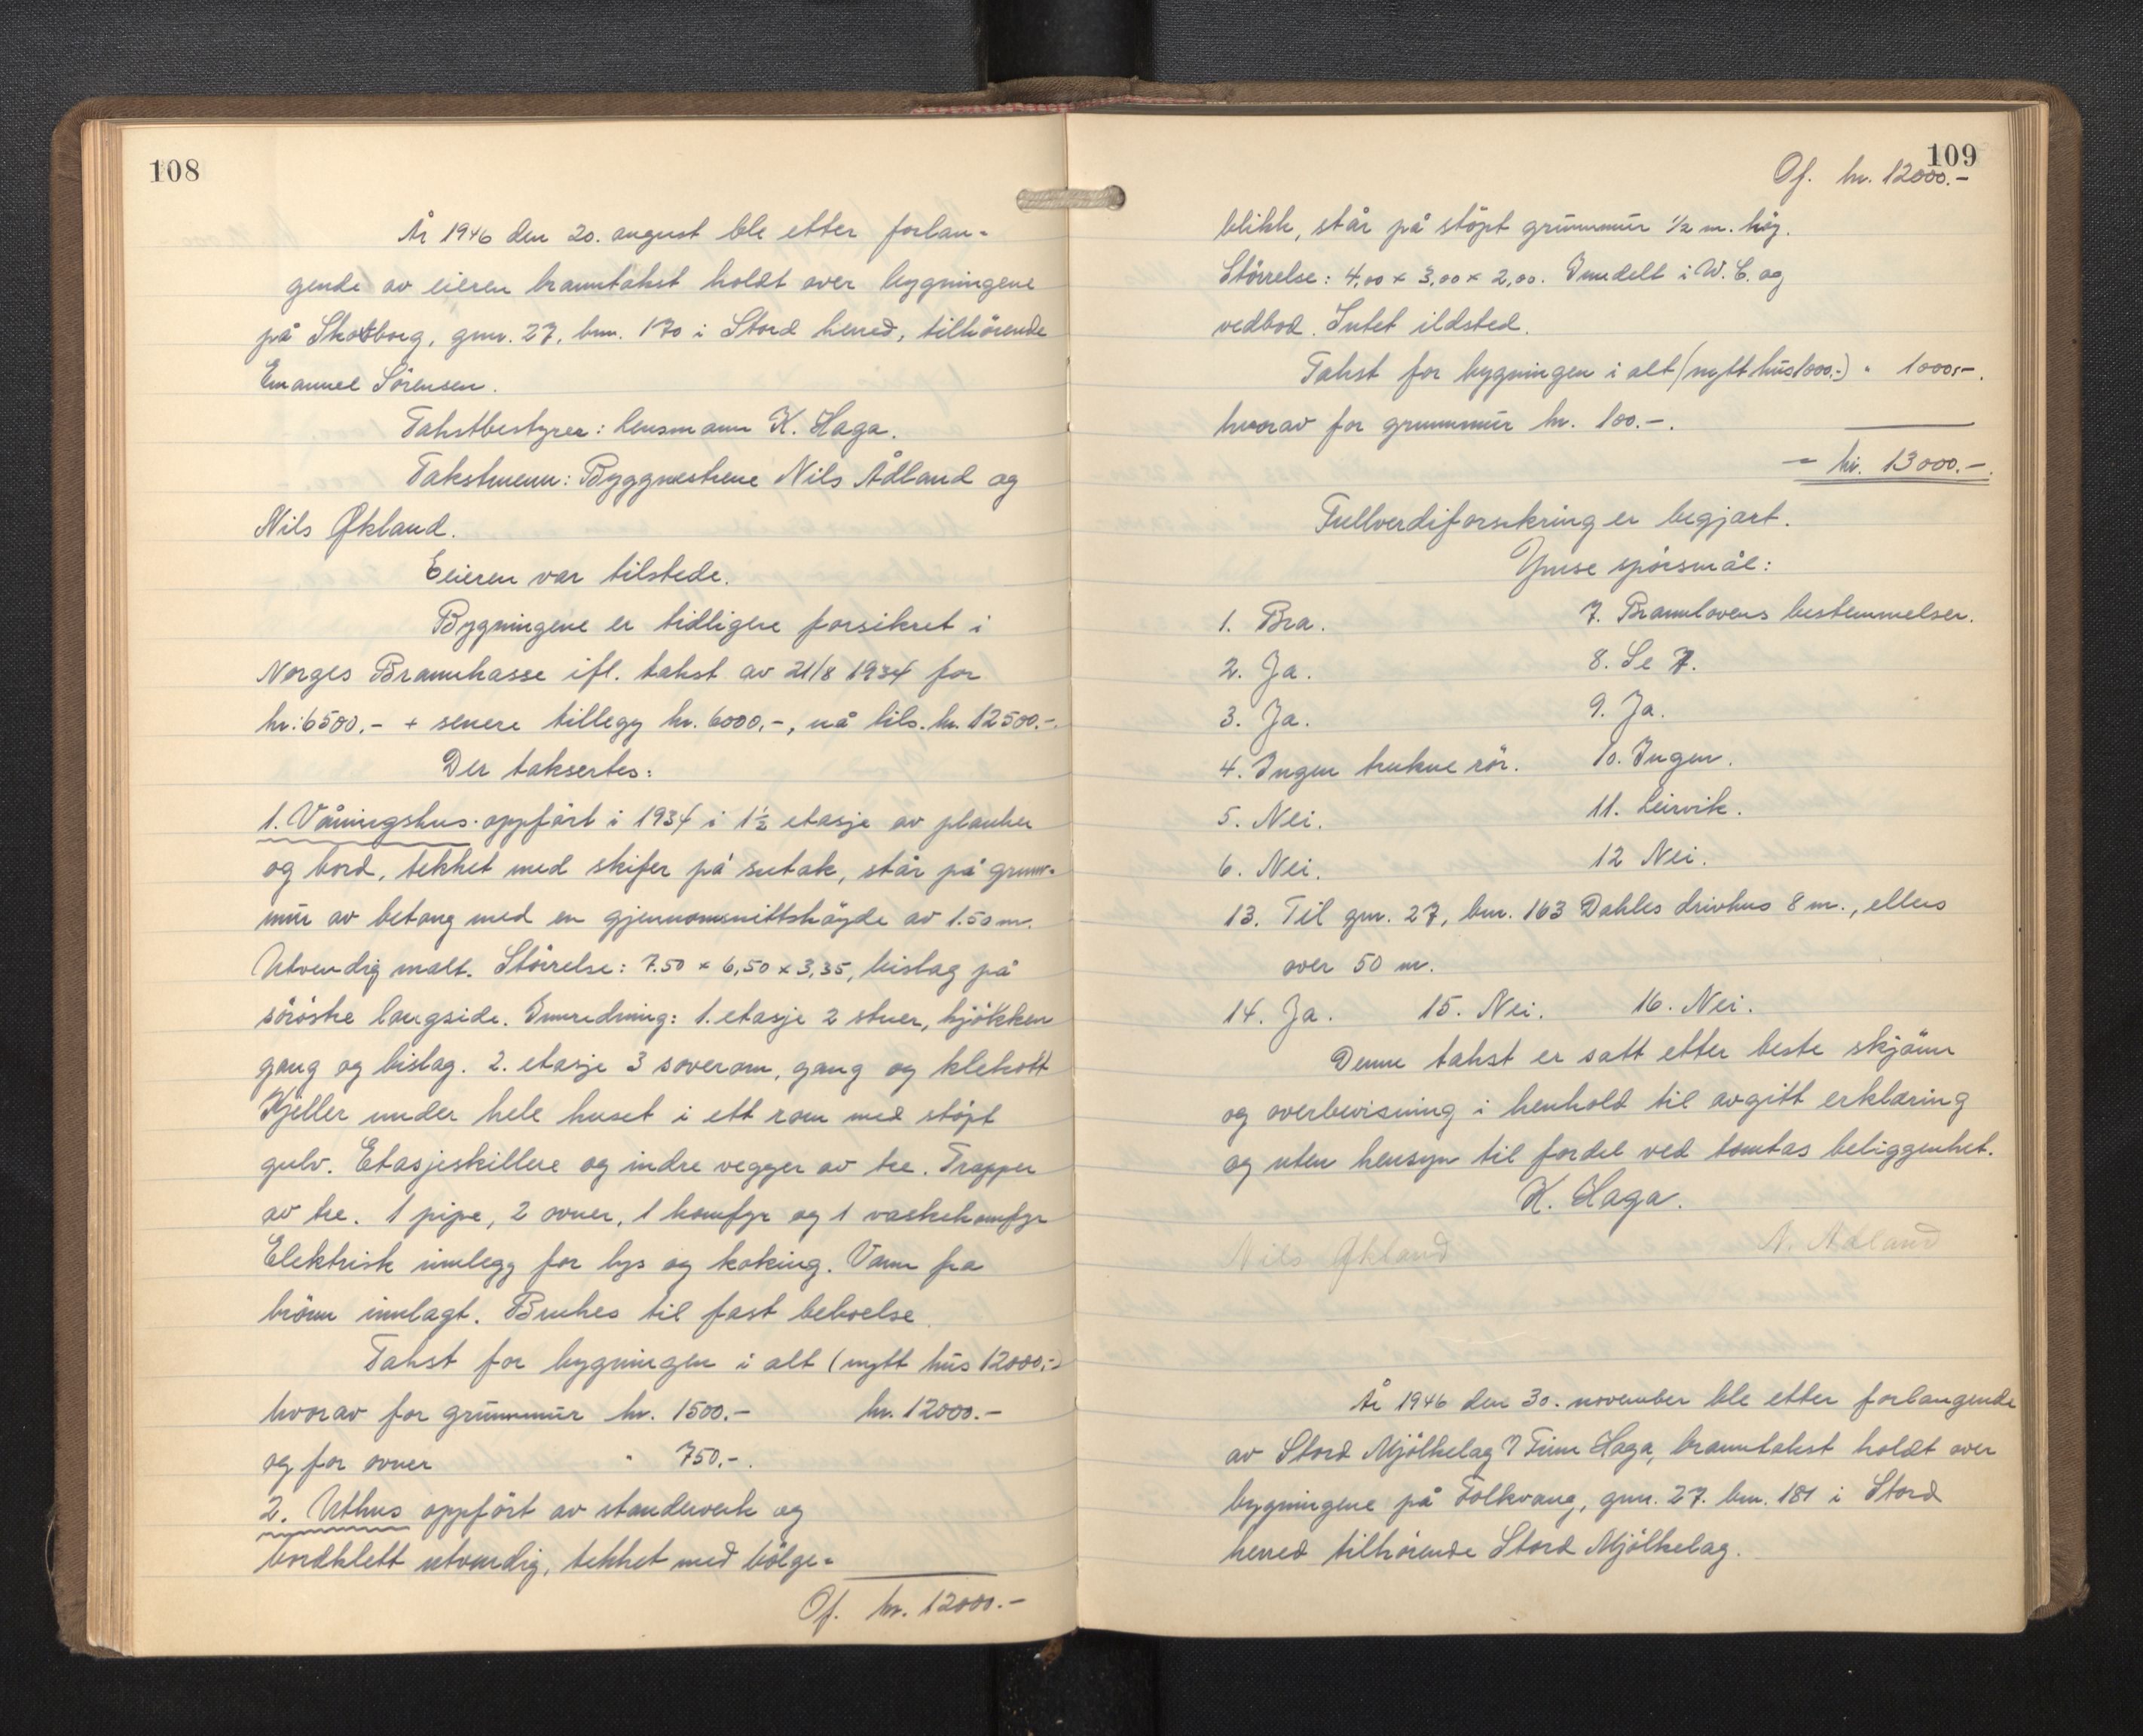 108
År 1946 den 20. august ble etter forlan-
gende av eieren branntakst holdt over bygningene
på Skotborg, gnr. 27, bnr. 170 i Stord herred, tilhörende
Emanuel Sörensen.
Takstbestyrer: lensmann K. Haga.
Takstmenn: Byggmestrene Nils Ådland og
Nils Økland.
Eieren var tilstede.
Bygningene er tidligere forsikret i
Norges Brannkasse ifl. takst av 21/8 1934 for
kr: 6500.- + senere tillegg kr. 6000,-, nå tils. kr. 12500.-.
Der taksertes:
1. Våningshus oppfört i 1934 i 1½ etasje av planker
og bord, tekket med skifer på sutak, står på grunn-
mur av betong med en gjennomsnittshöyde av 1.50 m.
Utvendig malt. Störrelse: 7.50 x 6,50 x 3,35, bislag på
söröstre langside. Innredning: 1. etasje 2 stuer, kjökken
gang og bislag. 2. etasje 3 soverom, gang og klekott
Kjeller under hele huset i ett rom med stöpt
gulv. Etasjeskillere og indre vegger av tre. Trapper
av tre. 1 pipe, 2 ovner, 1 komfyr og 1 vaskekomfyr
Elektrisk innlegg for lys og koking. Vann fra
brönn innlagt. Brukes til fast beboelse.
Takst for bygningen i alt (nytt hus 12000.-)
hvorav for grunnmur kr. 1500.- kr. 12000.-
og for ovner " 750.-.
2. Uthus oppfört av standerverk og
bordklett utvendig, tekket med bölge-
Of. kr. 12000.-
109
Of. kr. 12000.-
blikk, står på stöpt grunnmur ½ m. höy.
Störrelse: 4,00 x 3,00 x 2,00. Inndelt i W.C. og
vedbod. Intet ildsted.
Takst for bygningen i alt (nytt hus 1000.-) " 1000.-.
hvorav for grunnmur kr. 100.-.
= kr. 13000.-.
Fullverdiforsikring er begjært.
Ymse spörsmål:
1. Bra. 7. Brannlovens bestemmelser.
2. Ja. 8. Se 7.
3. Ja. 9. Ja.
4. Ingen trukne rör. 10. Ingen.
5. Nei. 11. Leirvik.
6. Nei. 12 Nei.
13. Til gnr. 27, bnr. 163 Dahles drivhus 8 m., ellers
over 50 m.
14. Ja. 15. Nei. 16. Nei.
Denne takst er satt etter beste skjönn
og overbevisning i henhold til avgitt erklæring
og uten hensyn til fordel ved tomtas beliggenhet.
K. Haga.
Nils Økland N. Ådland
År 1946 den 30. november ble etter forlangende
av Stord Mjölkelag v/ Finn Haga, branntakst holdt over
bygningene på Folkvang, gnr. 27. bnr. 181 i Stord
herred tilhörende Stord Mjölkelag.